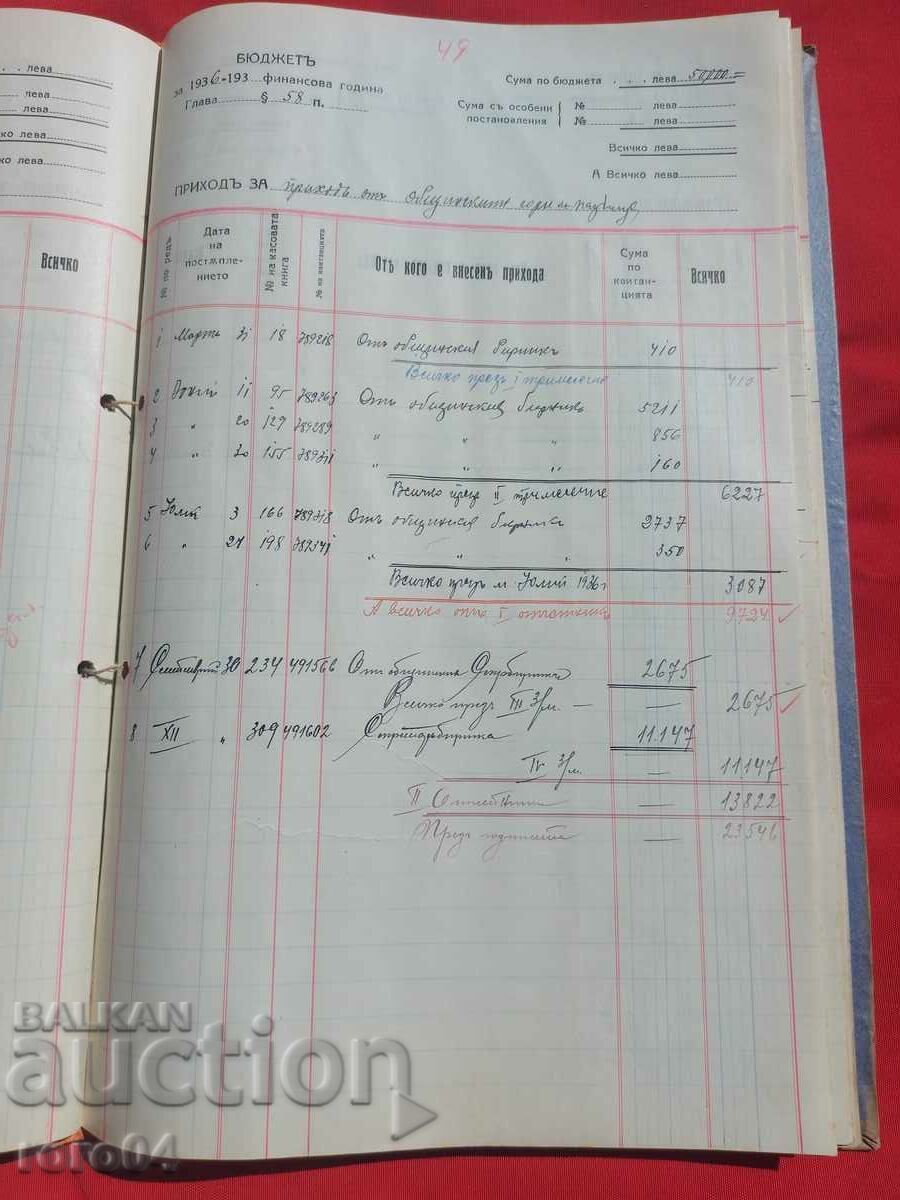 49
БЮДЖЕТЪ
за 1936-193 финансова година
Глава § 58 п.
Сума по бюджета . . . лева 50000.=
Сума съ особени постановления { № лева
№ лева
Всичко лева
А Всичко лева
. . лева
лева
лева
ко лева
ичко лева
Всичко
ПРИХОДЪ ЗА приходъ отъ общинските гори и
№ по редъ
Дата на постѫплението
№ на касовата книга
№ на квитанцията
Отъ кого е внесенъ прихода
Сума по квитанцията
Всичко
1 Мартъ 31 18 789218 Отъ общинския бирникъ 410
Всичко презъ I тримесечие 410
2 Юний 11 95 789263 Отъ общинския бирникъ 5211
3 " 20 129 789289 " " " 856
4 " 30 155 789311 " " " 160
Всичко презъ II тримесечие 6227
5 Юлий 3 166 789318 Отъ общинския бирникъ 2737
6 " 27 198 789341 " " " 350
Всичко презъ м. Юлий 1936 г. 3087
А всичко отъ I 9724
7 Септемврий 30 234 491566 Отъ общински 2675
Всичко презъ III 3/м. — — 2675
8 XII " 309 491602 11147
IV 3/м. — 11147
II — 13822
Презъ годината — 23546
BALKAN
auction
roro04